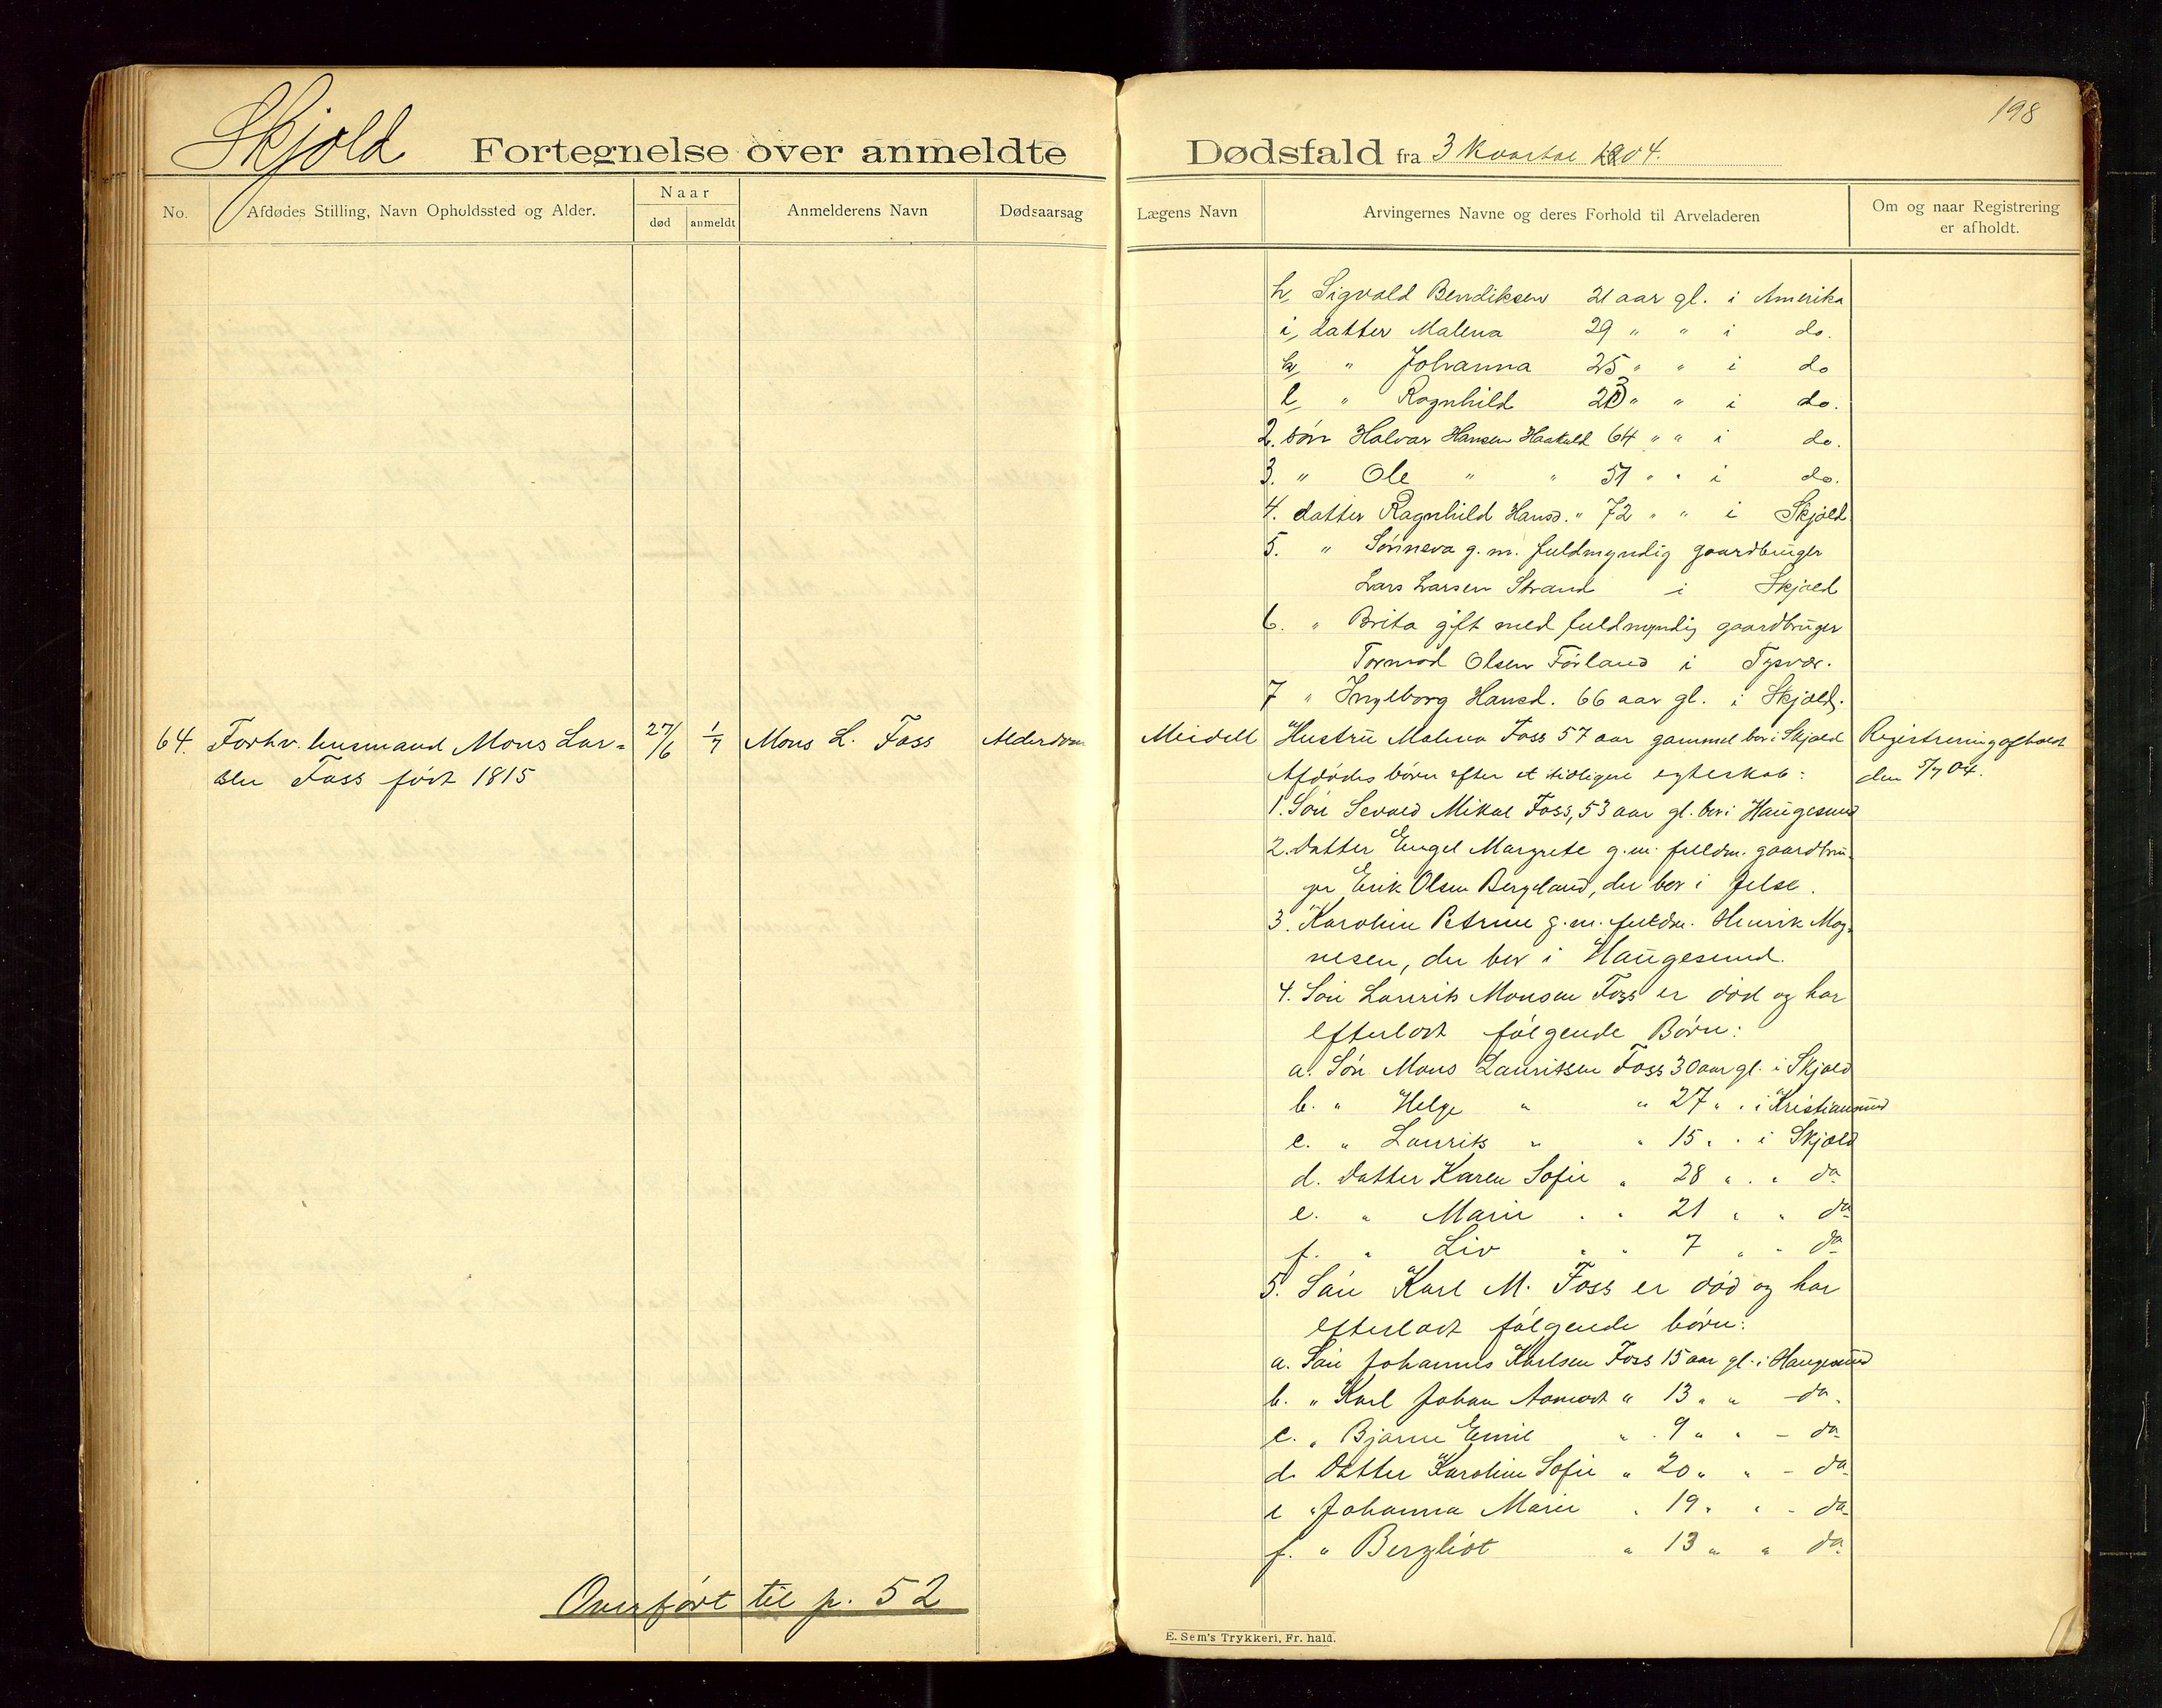 198
Skjold Fortegnelse over anmeldte Dødsfald fra 3 Kvartal 1904.
No.
Afdødes Stilling, Navn Opholdssted og Alder.
Naar
død
anmeldt
Anmelderens Navn
Dødsaarsag
Lægens Navn
Arvingernes Navne og deres Forhold til Arveladeren
Om og naar Registrering
er afholdt.
h, Sigvald Bendiksen 21 aar gl. i Amerika
i, datter Malena 29 " " i do.
k, " Johanna 25 " " i do
l, " Ragnhild 23 " " i do.
2. søn Halvar Hansen Haakuld 64 " " i do.
3. " Ole " " 51 " " i do.
4. datter Ragnhild Hansd. " 72 " " i Skjold
5. " Sønneva g. m. fuldmyndig gaardbruger
Lars Larsen Strand i Skjold
6. " Brita gift med fuldmyndig gaardbruger
Tormod Olsen Førland i Tysvær.
7 " Ingeborg Hansd. 66 aar gl. i Skjold.
64. Forhv. husmand Mons Lar=
sen Foss født 1815
27/6
1/7
Mons L. Foss
Alderdom
Meidell
Hustru Malena Foss 57 aar gammel bor i Skjold
Afdødes børn efter et tidligere egteskab:
1. Søn Sevald Mikal Foss, 53 aar gl. bor i Haugesund
2. Datter Engel Margrete g. m. fuldm. gaardbru-
ger Erik Olsen Bergeland, der bor i Jelse.
3. " Karoline Petrine g. m. fuldm. Henrik Mag-
nesen, der bor i Haugesund.
4. Søn Laurits Monsen Foss er død og har
efterladt følgende Børn:
a. Søn Mons Lauritsen Foss 30 aar gl. i Skjold
b. " Helge " " 27 " " i Kristiansund
c. " Laurits " " 15 " " i Skjold
d. Datter Karen Sofie " 28 " " " do
e. " Marie " " 21 " " do
f. " Liv " " 7 " " do
5. Søn Karl M. Foss er død og har
efterladt følgende børn:
a. Søn Johannes Karlsen Foss 15 aar gl. i Haugesund
b. " Karl Johan " 13 " " - do.
c. " Bjarne Emil " 9 " " - do
d. Datter Karoline Sofie " 20 " " - do
e " Johanna Marie " 19 " " - do
f. " Bergliot " 13 " " do
Registrering afholdt
den 5/7 04.
Overført til p. 52
E. Sem's Trykkeri, Fr. hald.